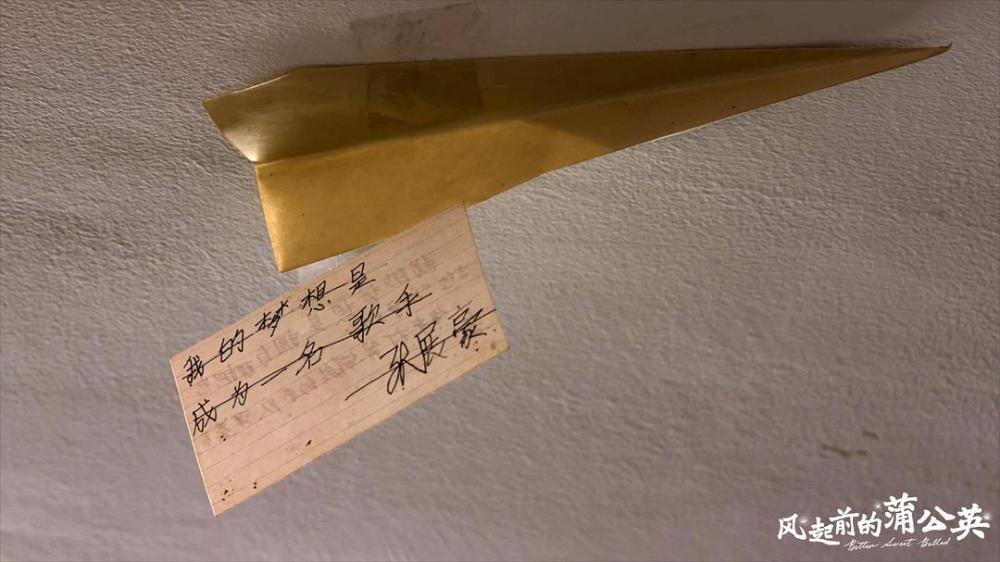 我的梦想是
成为一名歌手
张展豪
风起前的蒲公英
Bitter Sweet Ballad